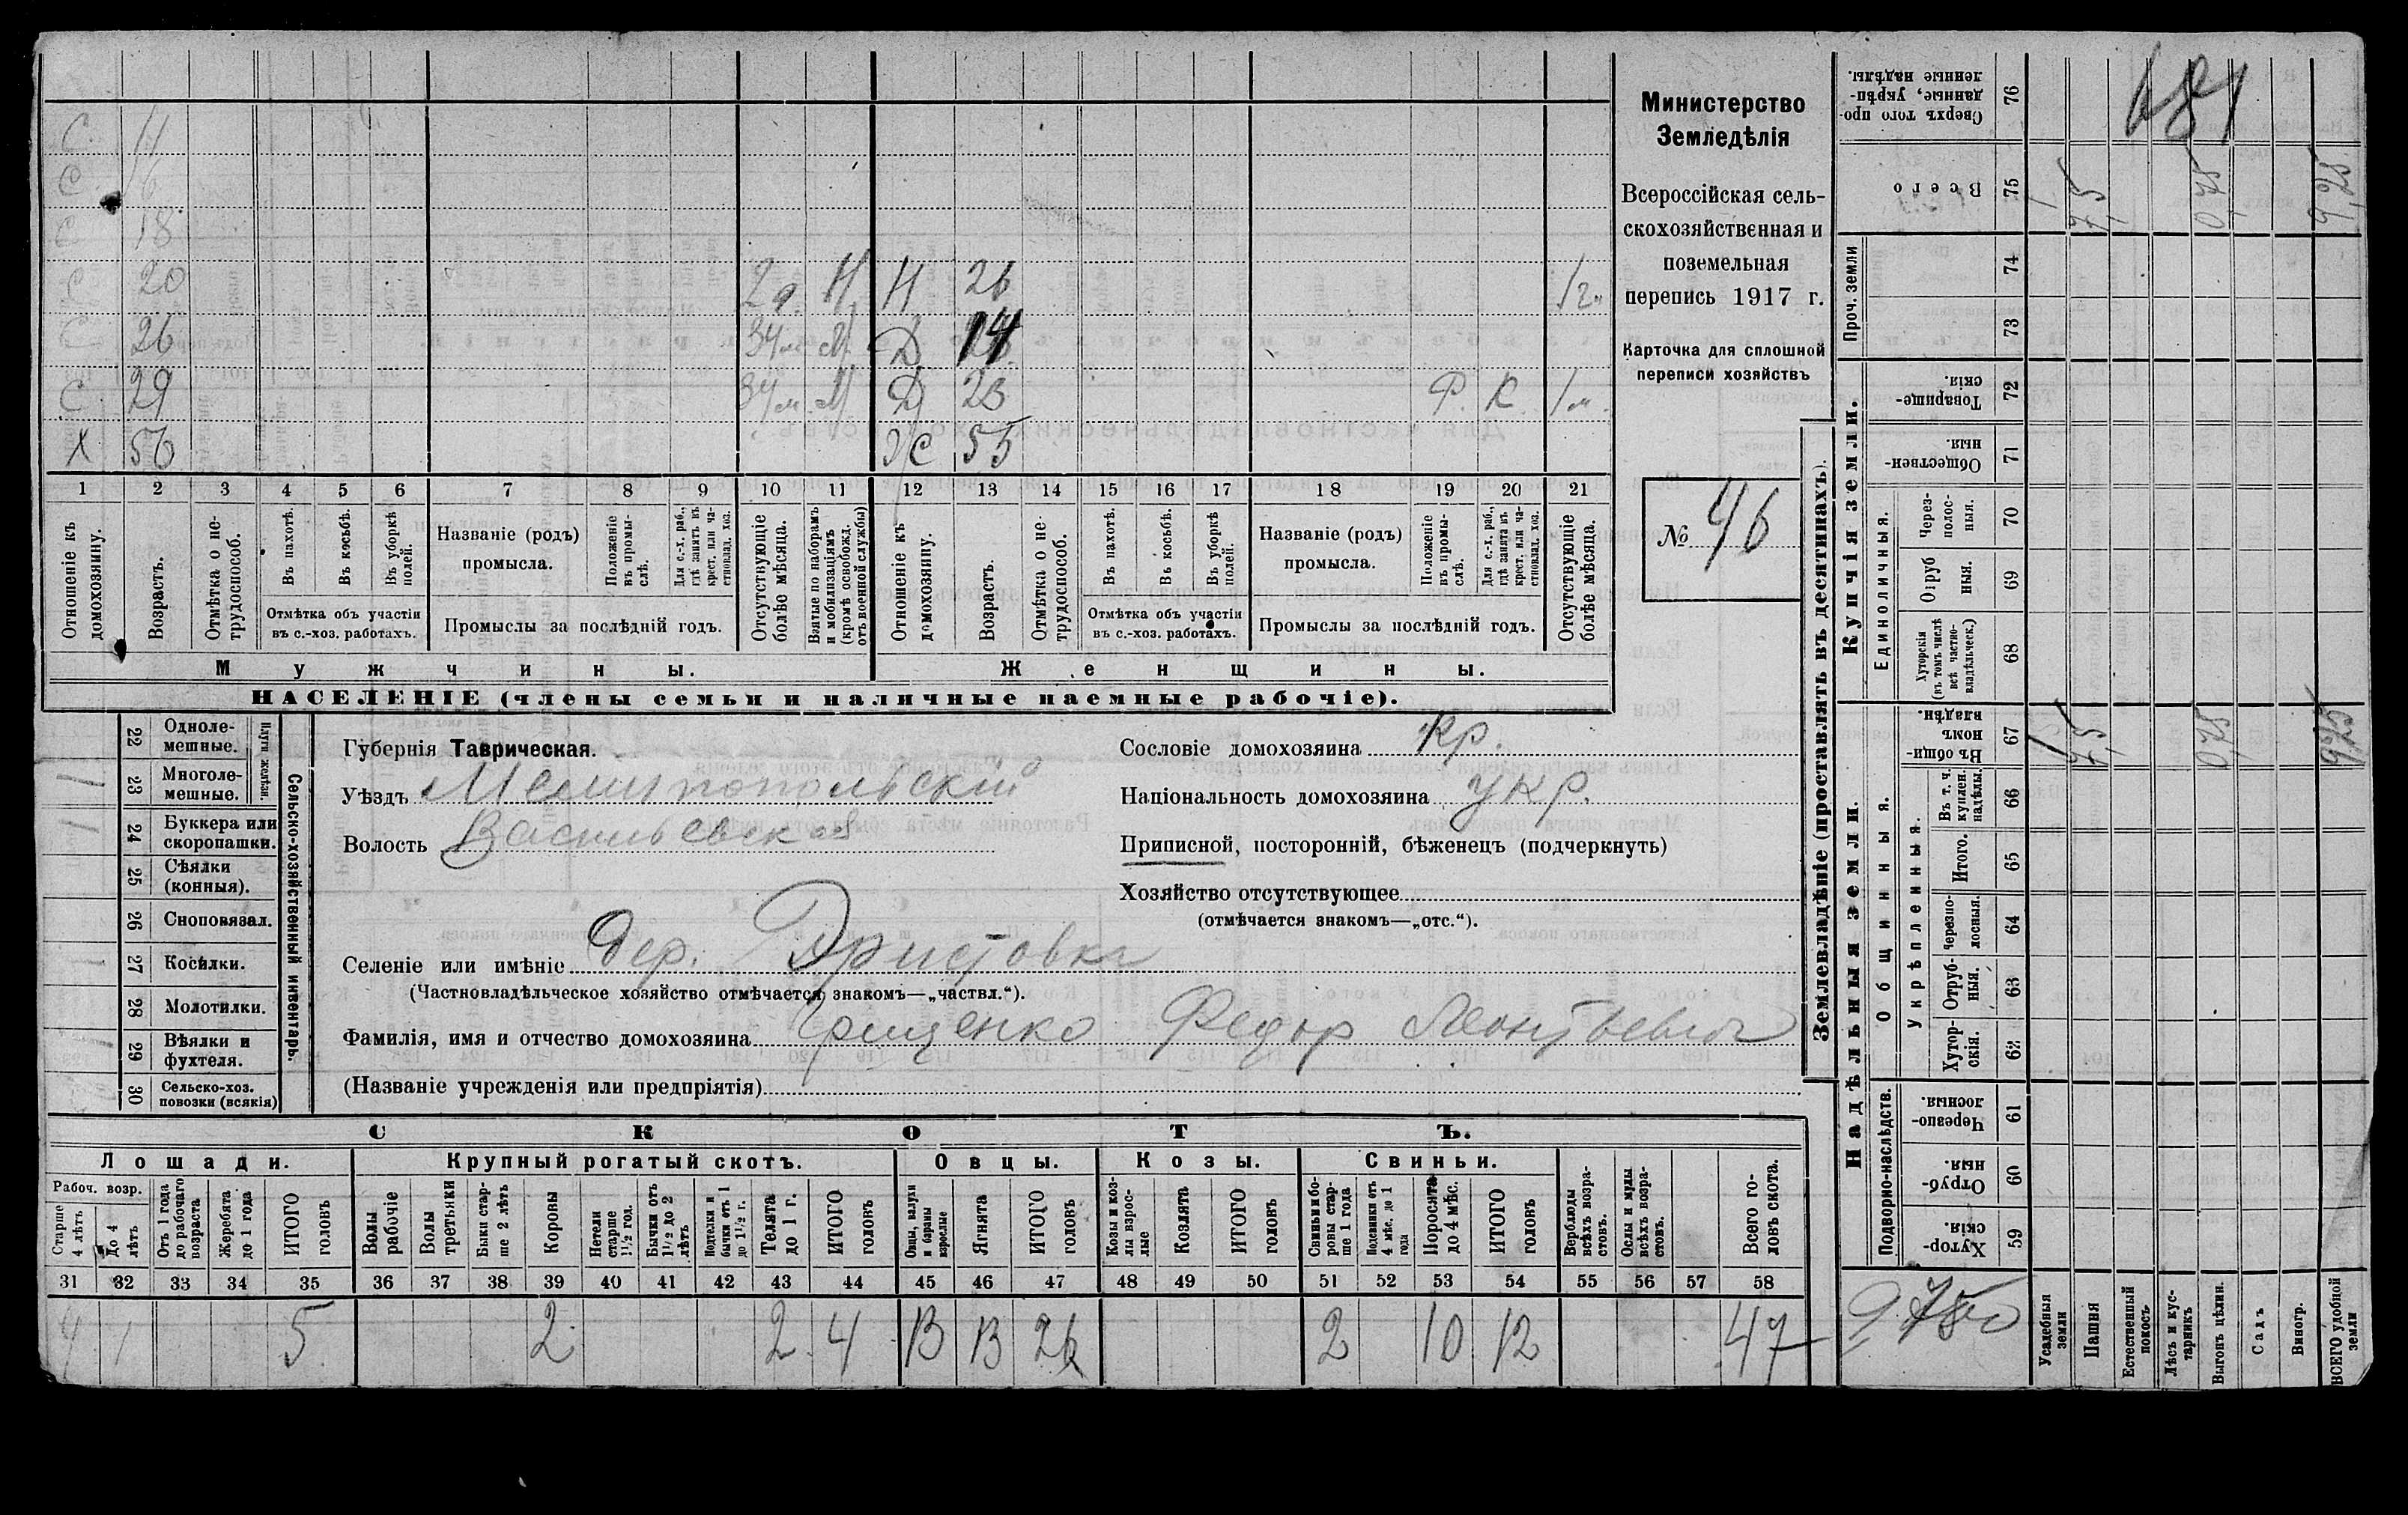 Министерство
Земледѣлія
Всероссійская сель-
скохозяйственная и
поземельная
перепись 1917 г.
Карточка для сплошной
переписи хозяйствъ
№ 46
С 11
С 16
С 18
С 20 2 г. Н Н 26 1 г.
С 26 34 м. М. Д 14
С 29 34 м. М Д 23 Р. К. 1 м.
Х 56 Ж 55
1 2 3 4 5 6 7 8 9 10 11 12 13 14 15 16 17 18 19 20 21
Отношеніе къ домохозяину.
Возрастъ.
Отмѣтка о не-трудоспособ.
Въ пахотѣ.
Въ косьбѣ.
Въ уборкѣ полей.
Отмѣтка объ участіи
въ с.-хоз. работахъ.
Названіе (родъ)
промысла.
Положеніе въ промы-слѣ.
Для с.-х. раб., гдѣ занятъ въ крест. или ча-стновлад. хоз.
Промыслы за послѣдній годъ.
Отсутствующіе болѣе мѣсяца.
Взятые по наборамъ и мобилизаціямъ (кромѣ освобожд. отъ военной службы)
Отношеніе къ домохозяину.
Возрастъ.
Отмѣтка о не-трудоспособ.
Въ пахотѣ.
Въ косьбѣ.
Въ уборкѣ полей.
Отмѣтка объ участіи
въ с.-хоз. работахъ.
Названіе (родъ)
промысла.
Положеніе въ промы-слѣ.
Для с.-х. раб., гдѣ занята въ крест. или ча-стновлад. хоз.
Промыслы за послѣдній годъ.
Отсутствующіе болѣе мѣсяца.
Мужчины. Женщины.
НАСЕЛЕНІЕ (члены семьи и наличные наемные рабочіе).
Сельско-хозяйственный инвентарь.
Плуги желѣзн.
22 Одноле-мешные.
23 Многоле-мешные. 1
24 Буккера или скоропашки. 1
25 Сѣялки (конныя).
26 Сноповязал.
27 Косилки. 1
28 Молотилки.
29 Вѣялки и фухтеля.
30 Сельско-хоз. повозки (всякія)
Губернія Таврическая.
Уѣздъ Мелитопольскій
Волость Васильевская
Сословіе домохозяина кр.
Національность домохозяина укр.
Приписной, посторонній, бѣженецъ (подчеркнуть)
Хозяйство отсутствующее
(отмѣчается знакомъ—„отс.“).
Селеніе или имѣніе дер.
(Частновладѣльческое хозяйство отмѣчается знакомъ—„частвл.“).
Фамилія, имя и отчество домохозяина Грищенко Федор Леонтьевич
(Названіе учрежденія или предпріятія)
СКОТЪ.
Лошади. Крупный рогатый скотъ. Овцы. Козы. Свиньи.
Рабоч. возр.
Старше 4 лѣтъ
До 4 лѣтъ
Отъ 1 года до рабочаго возраста
Жеребята до 1 года
ИТОГО головъ
Волы рабочіе
Волы третьяки
Быки стар-ше 2 лѣтъ
Коровы
Нетели старше 1½ год.
Бычки отъ 1½ до 2 лѣтъ
Подтелки и бычки отъ 1 до 1½ г.
Телята до 1 г.
ИТОГО головъ
Овцы, валухи и бараны взрослые
Ягнята
ИТОГО головъ
Козы и коз-лы взрос-лые
Козлята
ИТОГО головъ
Свиньи и бо-ровы стар-ше 1 года
Подсвинки отъ 4 мѣс. до 1 года
Поросята до 4 мѣс.
ИТОГО головъ
Верблюды всѣхъ возра-стовъ.
Ослы и мулы всѣхъ возра-стовъ.
Всего го-ловъ скота.
31 32 33 34 35 36 37 38 39 40 41 42 43 44 45 46 47 48 49 50 51 52 53 54 55 56 57 58
4 1 5 2 2 4 13 13 26 2 10 12 47
Землевладѣніе (проставлять въ десятинахъ).
Надѣльныя земли.
Купчія земли.
Проч. земли
Подворно-наслѣдств.
Общинныя.
Укрѣпленныя.
Единоличныя.
59 Хутор-скія.
60 Отруб-ныя
61 Черезпо-лосныя.
62 Хутор-скія.
63 Отруб-ныя.
64 Черезпо-лосныя.
65 Итого.
66 Въ т. ч. куплен. надѣлы.
67 Въ общи-номъ владѣн. 1 7,5 0,75 9,25
68 Хуторскія (въ томъ числѣ всѣ частно-владѣльческ.)
69 Отруб ныя.
70 Через-полос-ныя.
71 Обществен-ныя.
72 Товарище-скія.
73
74
75 Всего 1 7,5 0,75 9,25
76 Сверхъ того про-данные, укрѣп-ленные надѣлы.
Усадебныя земли
Пашня
Естественный покосъ
Лѣсъ и кус-тарникъ
Выгонъ цѣлин.
Садъ
Виногр.
ВСЕГО удобной земли